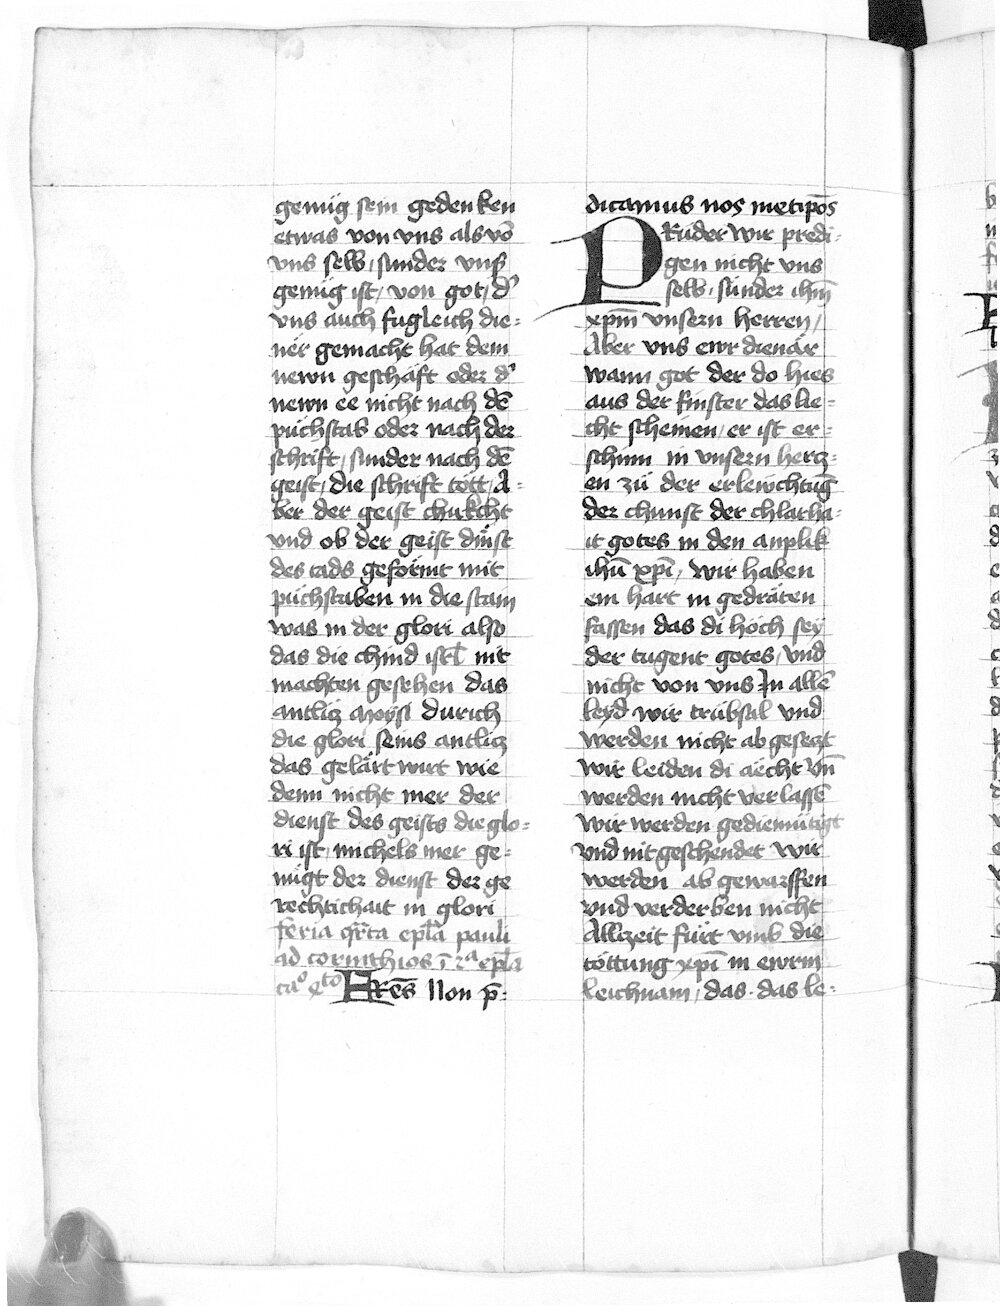 genúg sein gedenken
etwas von vns als vō
vns selb / sunder vnß
genúg ist / von got / d'
vns auch fugleich die=
ner gemacht hat dem
newn geschäft oder d'
newn ee nicht nach dē
púchstab oder nach der
schrift / sunder nach dē
geist / die schrift tött / A=
ber der geist chukcht
vnd ob der geist dinst
des tads geformt mit
púchstaben in die stain
was in der glori also
das die chind isrl nit
machten gesehen das
antlicz Moysi durich
die glori seins antlicz
das gelärt wirt wie
denn nicht mer der
dienst des geists die glo=
ri ist michels mer ge=
núgt der dienst der ge
rechtichait in glori
feria qrta epla pauli
ad corinthios ī 2a epla
cao qto FRēs Non p̄=
dicamus nos metipōs
PRúder wir predi=
gen nicht vns
selb / súnder ihm̄
xpm̄ vnsern herren /
Aber vns ewr dienär
wann got der do hies
aus der finster das lie=
cht scheinen / er ist er=
schinn in vnsern hercz=
en zú der erlewchtūg
der chunst der chlarha=
it gotes in den anplik
ihū xpī / wir haben
ein hart in gedräten
fassen das di höch seÿ
der tugent gotes / vnd
nicht von vns In allē
leÿd wir trúbsal vnd
werden nicht ab geseczt
wir leiden di aecht vn̄
werden nicht verlassē
wir werden gediemútigt
vnd nit geschendet wir
werden ab gewarffen
vnd verderben nicht
Allczeit fúrt vmb die
töttung xpī in ewrm
leichnam / das das le=